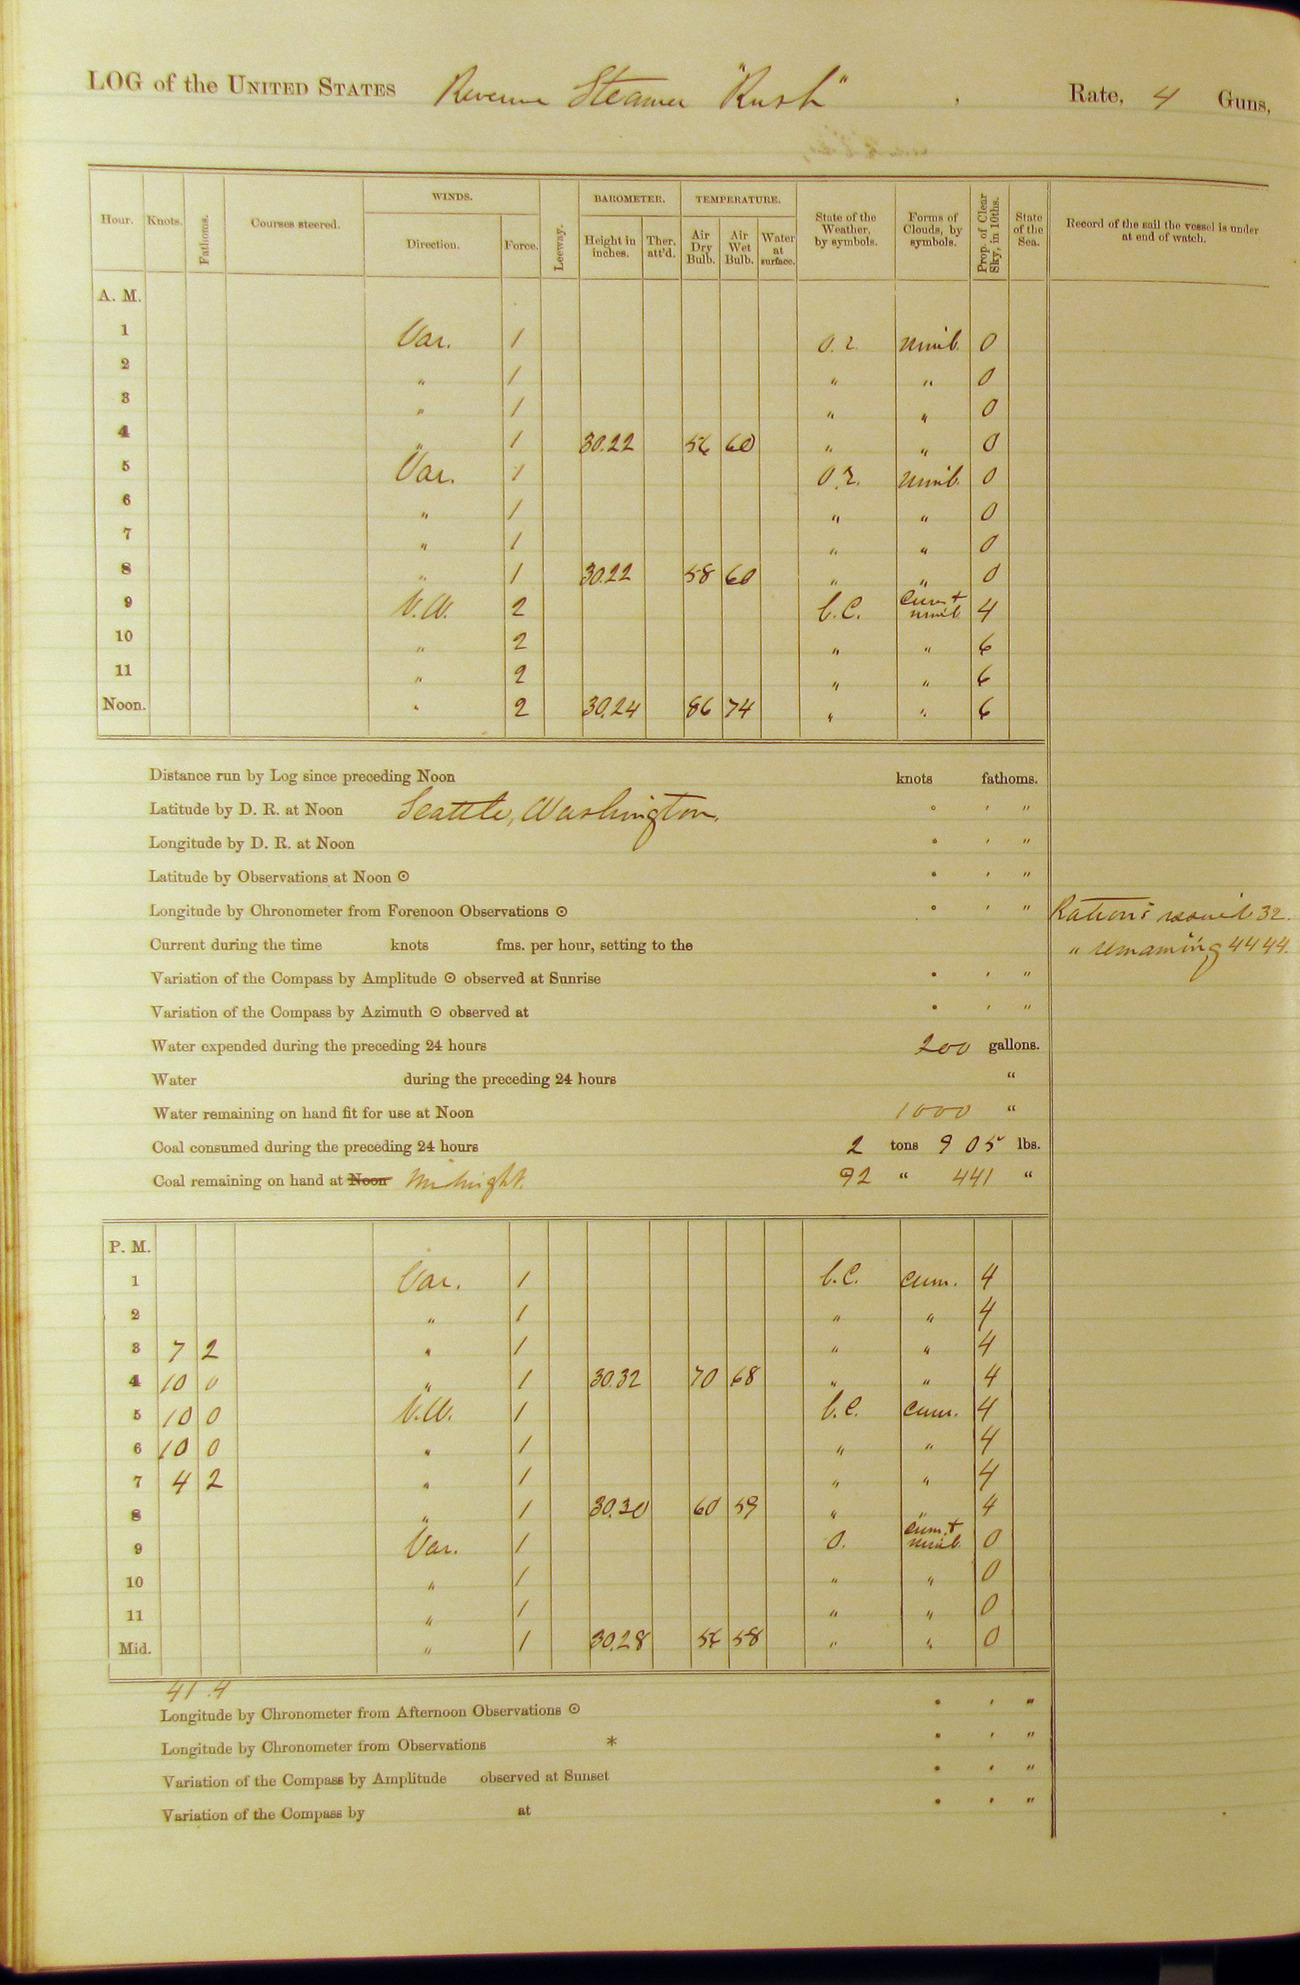 LOG of the UNITED STATES Revenue Steamer "Rush", Rate, 4 Guns,
Hour. Knots. Fathoms. Courses steered. WINDS. Leeway. BAROMETER. TEMPERATURE. State of the Weather, by symbols. Forms of Clouds, by symbols. Prop. of Clear Sky, in 10ths. State of the Sea. Record of the sail the vessel is under at end of watch.
Direction. Force. Height in inches. Ther. att'd. Air Dry Bulb. Air Wet Bulb. Water at surface.
A. M.
1 Var. 1 O. r. nimb. 0
2 " 1 " " 0
3 " 1 " " 0
4 " 1 30.22 56 60 " " 0
5 Var. 1 O. r. nimb. 0
6 " 1 " " 0
7 " 1 " " 0
8 " 1 30.22 58 60 " " 0
9 N.W. 2 b.c. cum. + nimb. 4
10 " 2 " " 6
11 " 2 " " 6
Noon. " 2 30.24 86 74 " " 6
Distance run by Log since preceding Noon knots fathoms.
Latitude by D. R. at Noon Seattle, Washington. ° ' "
Longitude by D. R. at Noon ° ' "
Latitude by Observations at Noon ☉ ° ' "
Longitude by Chronometer from Forenoon Observations ☉ ° ' " Rations issued 32.
Current during the time knots fms. per hour, setting to the " remaining 4444.
Variation of the Compass by Amplitude ☉ observed at Sunrise ° ' "
Variation of the Compass by Azimuth ☉ observed at ° ' "
Water expended during the preceding 24 hours 200 gallons.
Water during the preceding 24 hours "
Water remaining on hand fit for use at Noon 1000 "
Coal consumed during the preceding 24 hours 2 tons 905 lbs.
Coal remaining on hand at Noon Midnight. 92 " 441 "
P. M.
1 Var. 1 b.c. cum. 4
2 " 1 " " 4
3 7 2 " 1 " " 4
4 10 0 " 1 30.32 70 68 " " 4
5 10 0 N.W. 1 b.c. cum. 4
6 10 0 " 1 " " 4
7 4 2 " 1 " " 4
8 " 1 30.30 60 59 " " 4
9 Var. 1 O. cum. + nimb. 0
10 " 1 " " 0
11 " 1 " " 0
Mid. " 1 30.28 56 58 " " 0
41 .4
Longitude by Chronometer from Afternoon Observations ☉ ° ' "
Longitude by Chronometer from Observations * ° ' "
Variation of the Compass by Amplitude observed at Sunset ° ' "
Variation of the Compass by at ° ' "